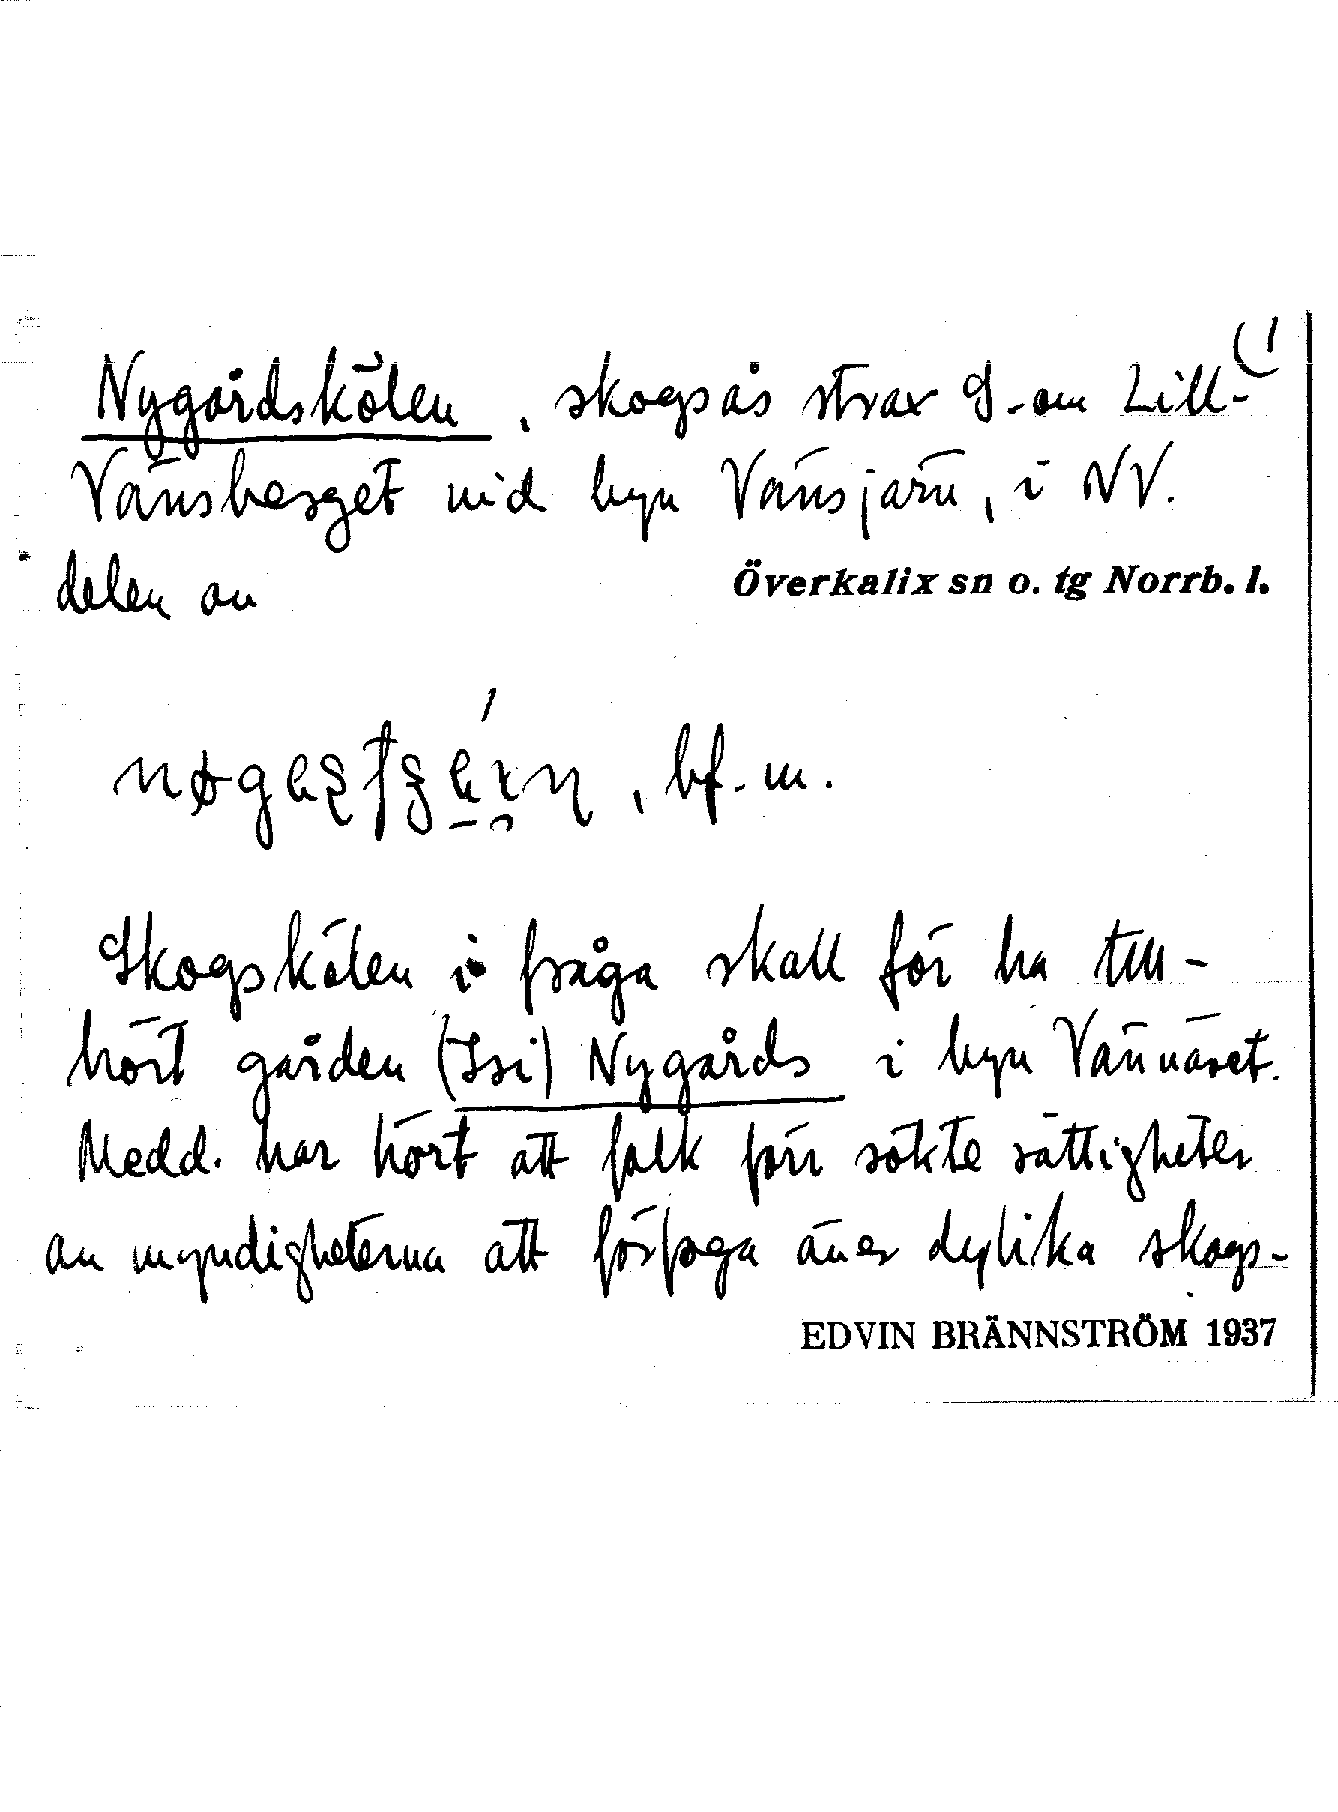 (1
Nygårdskölen, skogsås strax S-om Lill-
Vänsberget vid byn Vänsjärv, i NV.
delen av Överkalix sn o. tg Norrb. l.
, bf. m.
Skogskölen i fråga skall förr ha till-
hört gården (Isi) Nygårds i byn Vännäset.
Medd. har hört att folk förr sökte rättigheter
av myndigheterna att förfoga över dylika skogs-
EDVIN BRÄNNSTRÖM 1937